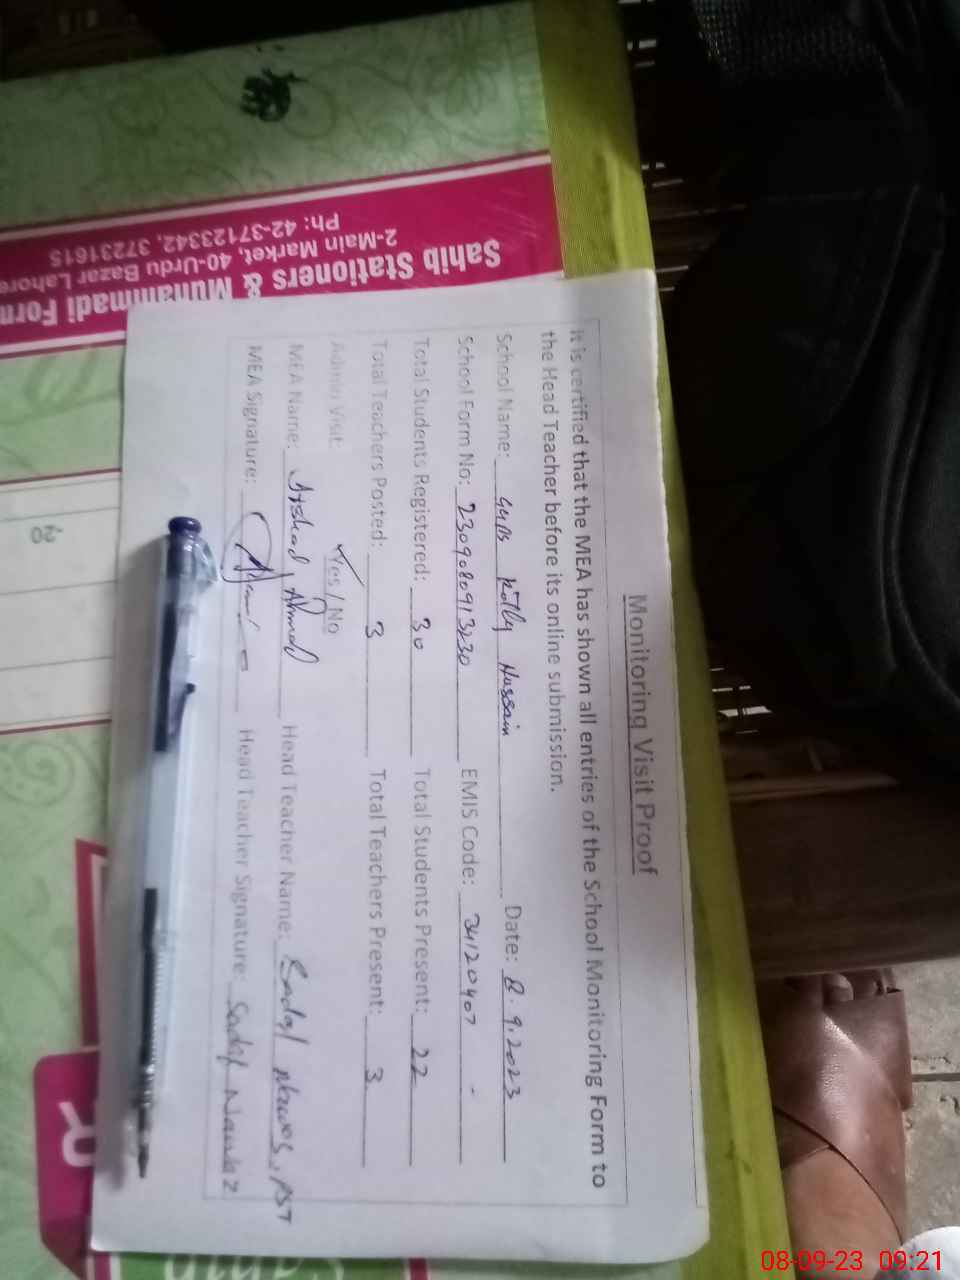 Monitoring Visit Proof
It is certified that the MEA has shown all entries of the School Monitoring Form to
the Head Teacher before its online submission.
School Name: GGPS Kotly Hussain Date: 8.9.2023
School Form No: 2309080913230 EMIS Code: 34120407
Total Students Registered: 30 Total Students Present: 22
Total Teachers Posted: 3 Total Teachers Present: 3
Admin Visit: Yes / No
MEA Name: Arshad Ahmad Head Teacher Name: Sadaf Nawaz, PST
MEA Signature: Head Teacher Signature: Sadaf Nawaz
Sahib Stationers & Muhammadi Form
2-Main Market, 40-Urdu Bazar Lahore
Ph: 42-37123342, 37231615
-20
08-09-23 09:21